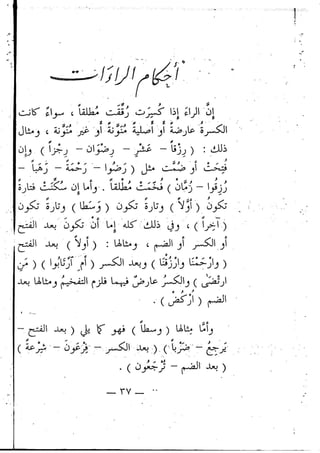 أحكام الراءات
إن الراءَ إذا كُسِرت رُقّقت مُطلقاً ، سواءٌ كانت
الكسرة عارضة أو أصلية مُنوّنة أو غير مُنوّنة ، ومثال
ذلك : ( رِزْقاً – عَشْرِ – رِضْوَان – رِجْزاً ) وإن
فُتِحَتْ أو ضُمّت مثل ( رَضُوا – رَحْمَة – رَهْباً –
رُزِقُوا – رُمَّان ) فُخّمَتْ مُطلقاً . وأما إن سَكَنَتْ فتارةً
تكونُ ( أوّلاً ) وتارةً تكون ( وَسَطا ) وتارة تكون
( آخِراً ) ، وفي ذلك كله إما أن تكونَ بعد الفتح
أو الكسر أو الضم ، ومثالها : ( أولاً ) بعد الفتح
( وارْحَمْنا وارْزُقْنا ) وبعد الكسر ( أَمِ ارْتَابُوا ) ( مَنِ
ارتَضَى ) والكسرُ عارِضٌ فيهما فلزم التفخيم ومثالها بعد
الضم ( اُرْكُضْ ) .
وأمّا مثالها ( وسطاً ) فهو كما يلي ( بعد الفتح –
يَرجِعُ – ضَرْباً ) ( بعد الكسر – فِرْعَون – شِرْعَة )
( بعد الضم – تُرْجَعُون ) .
– ٣٧ –